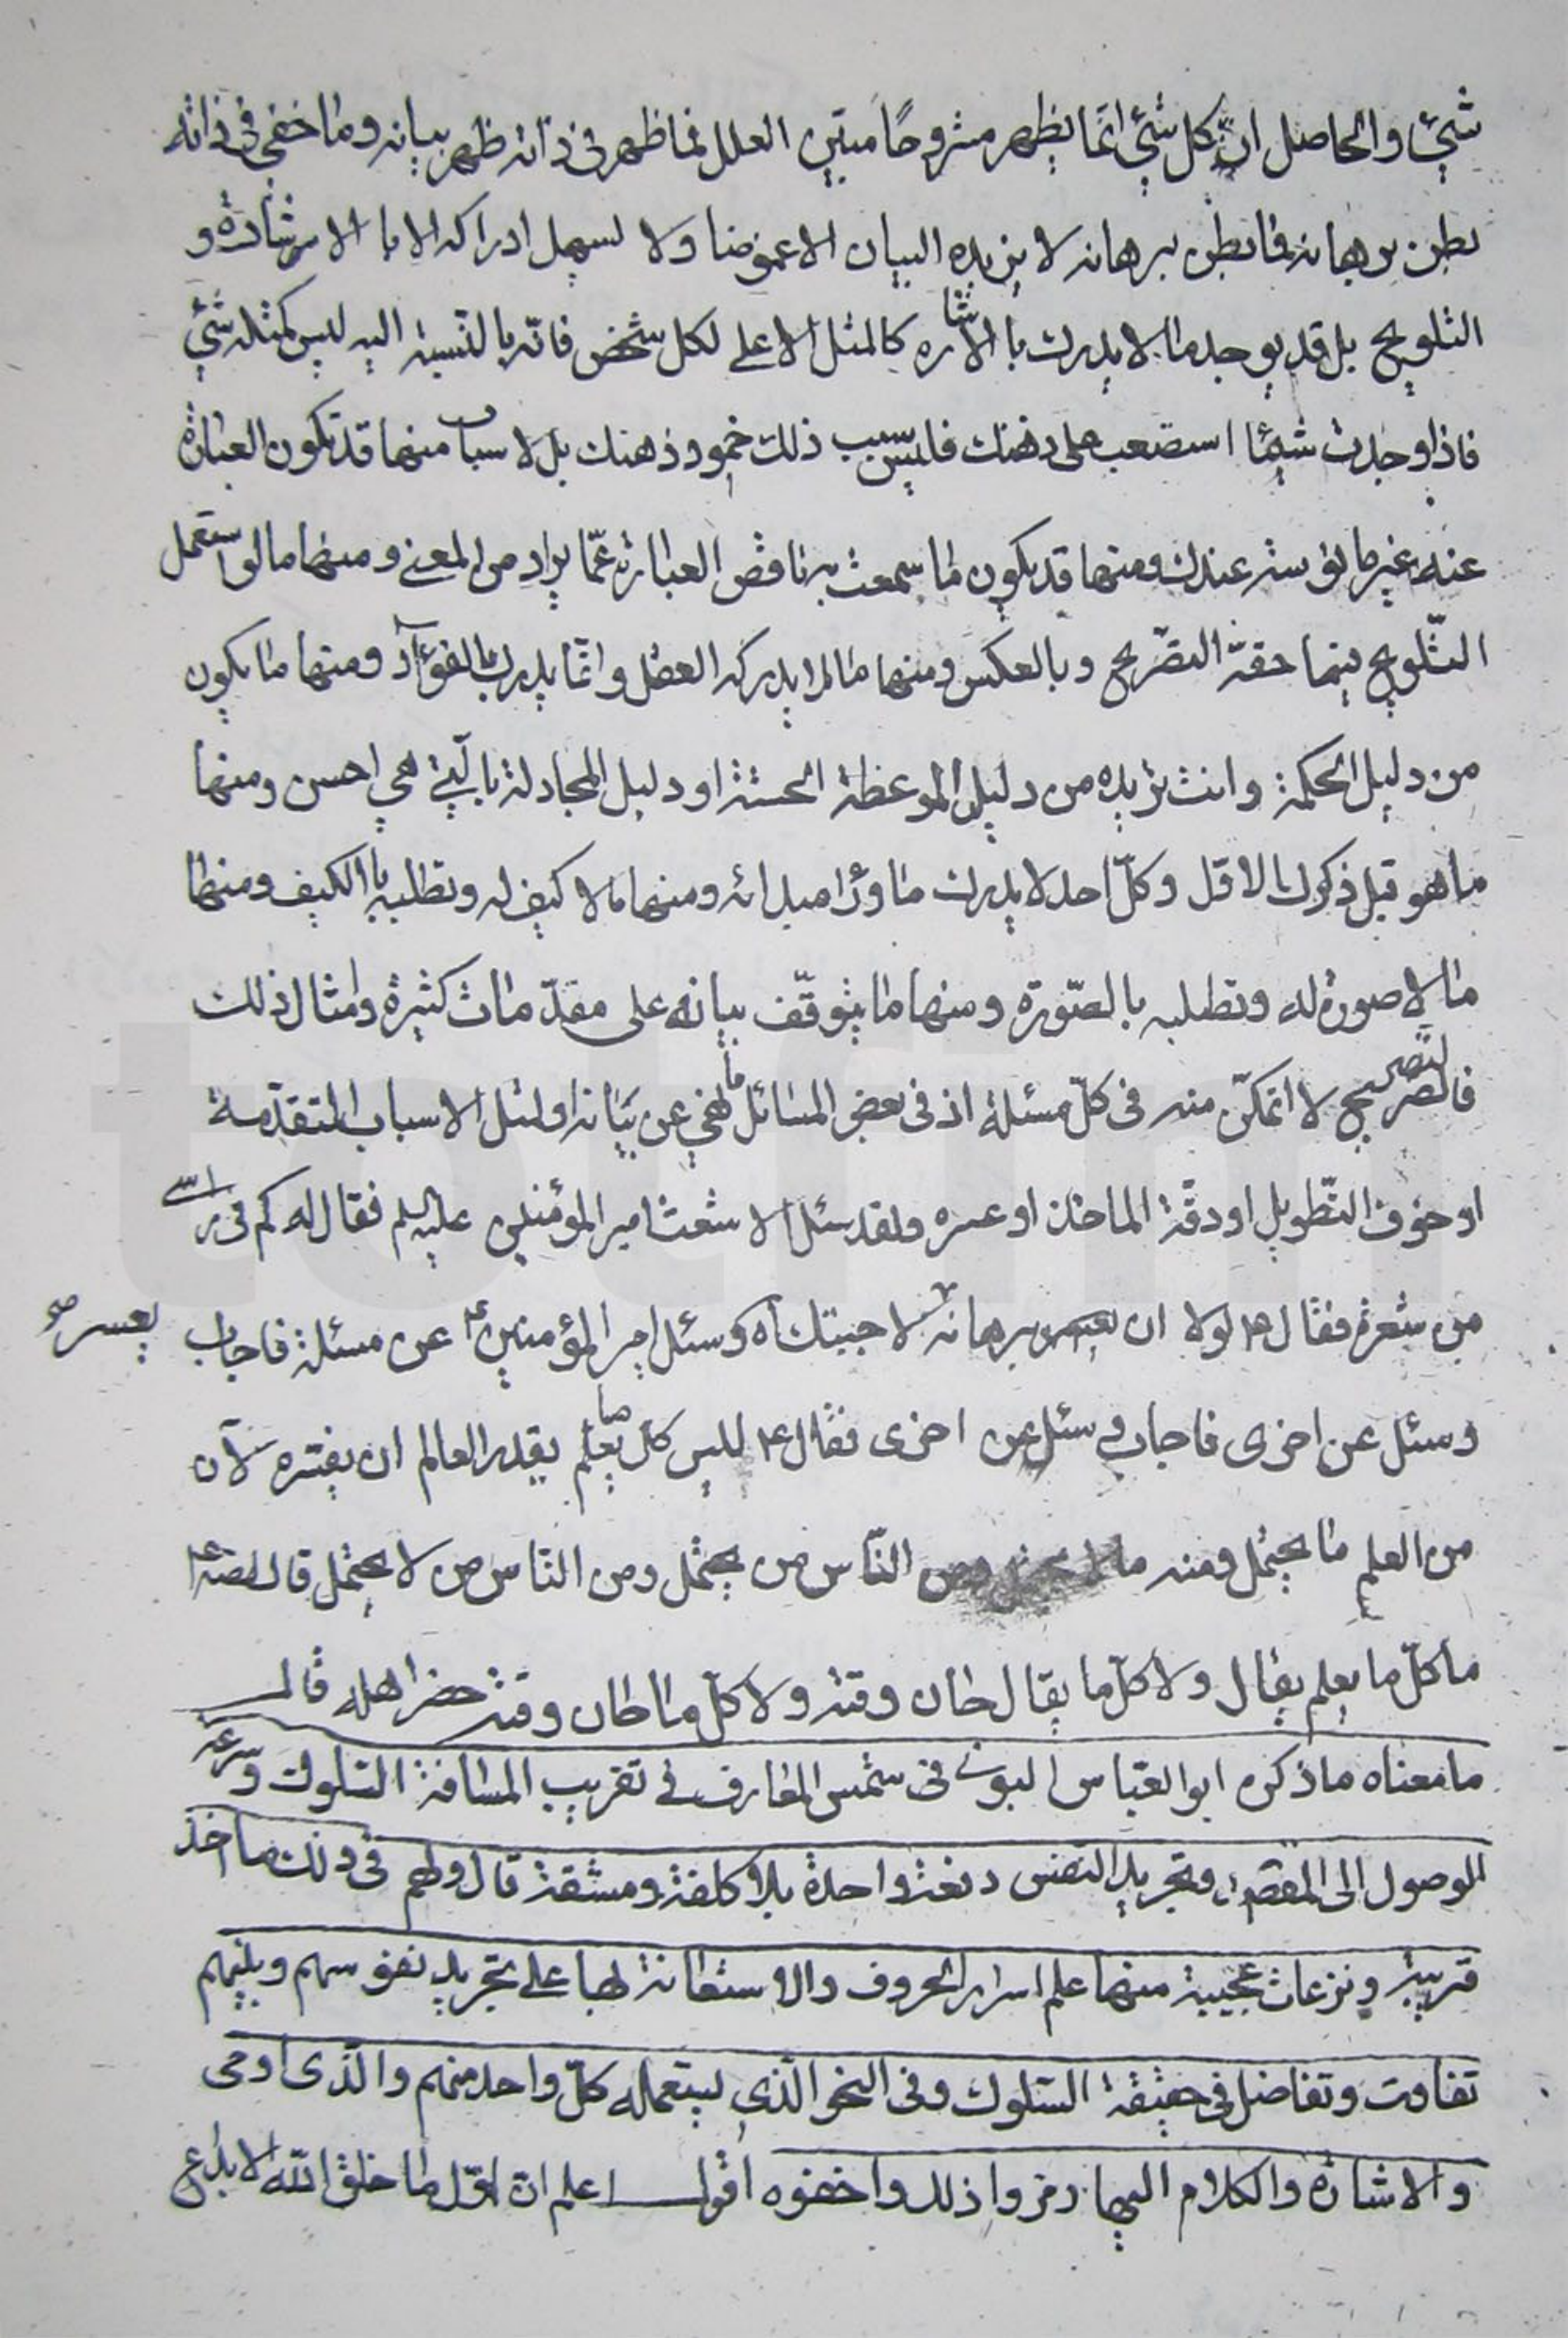 شيئ والحاصل ان كل شيئ انما يظهر مشروحًا مبيّن العلل فما ظهر فى ذاته ظهر ببيانه وما خفى فى ذاته
بطن برهانه فما بطن برهانه لا يزيده البيان الا غموضا ولا يسهل ادراكه الا با الاشارة و
التلويح بل قد يوجد ما لا يدرك با الاشاره كالمثل الاعلى لكل شخص فانّه بالنّسبة اليه ليس كمثله شيئ
فاذا وجدت شيئًا استصعب على ذهنك فليس سبب ذلك خمود ذهنك بل لاسباب منها قد تكون العبارة
عنه غير مانوسة عندك ومنها قد يكون ما سمعت به ناقص العبارة عمّا يراد من المعنى ومنها ما لو استعمل
التّلويح فيها حقه التصّريح وبالعكس ومنها ما لا يدركه العقل وانّما يدرك بالفؤآد ومنها ما يكون
من دليل الحكمة وانت تريده من دليل الموعظة الحسنة او دليل المجادلة بالّتي هي احسن ومنها
ما هو قبل ذكرك الاول وكلّ احد لا يدرك ما ورآ مبدائه ومنها ما لا كيف له وتطلبه با الكيف ومنها
ما لا صورة له وتطلبه بالصّورة ومنها ما يتوقّف بيانه على مقدّمات كثيرة وامثال ذلك
فالتصريح لا اتمكّن منه فى كلّ مسئلة اذ فى بعض المسائل ما يخفي عن بيانه او لمثل الاسباب المتقدّمة
او خوف التّطويل او دقّة الماخذ او عسره ولقد سئل الاشعث امير المؤمنين عليه السلم فقال له كم فى راسى
من شعرة فقال ع لولا ان يعسر برهانه لاخبرتك آه وسئل امير المؤمنين ع عن مسئلة فاجاب يعسر صح
وسئل عن اخرى فاجاب وسئل عن اخرى فقال ع ليس كل ما يعلم يقدر العالم ان يفسّره لانّ
من العلم ما يحتمل ومنه ما لا يحتمل ومن النّاس من يحتمل ومن النّاس من لا يحتمل قال الصّ ع
ما كلّ ما يعلم يقال ولا كلّ ما يقال حان وقته ولا كلّ ما حان وقته حضر اهله قال
ما معناه ما ذكره ابو العبّاس البونى فى شمس المعارف فى تقريب المسافة السّلوك وسرعة
الوصول الى المقصد وتجريد النّفس دفعة واحدة بلا كلفة ومشقة قال ولهم فى ذلك ماخذ
قريبة ونزعات عجيبة منها علم اسرار الحروف والاستعانة بها على تجريد نفوسهم وبينهم
تفاوت وتفاضل فى حقيقة السّلوك وفى النحو الّذى يستعمله كلّ واحد منهم والّذى اوحى
والاشارة والكلام اليها رمزوا ذلك واخفوه اقول اعلم انّ اوّل ما خلق اللّه الابداع